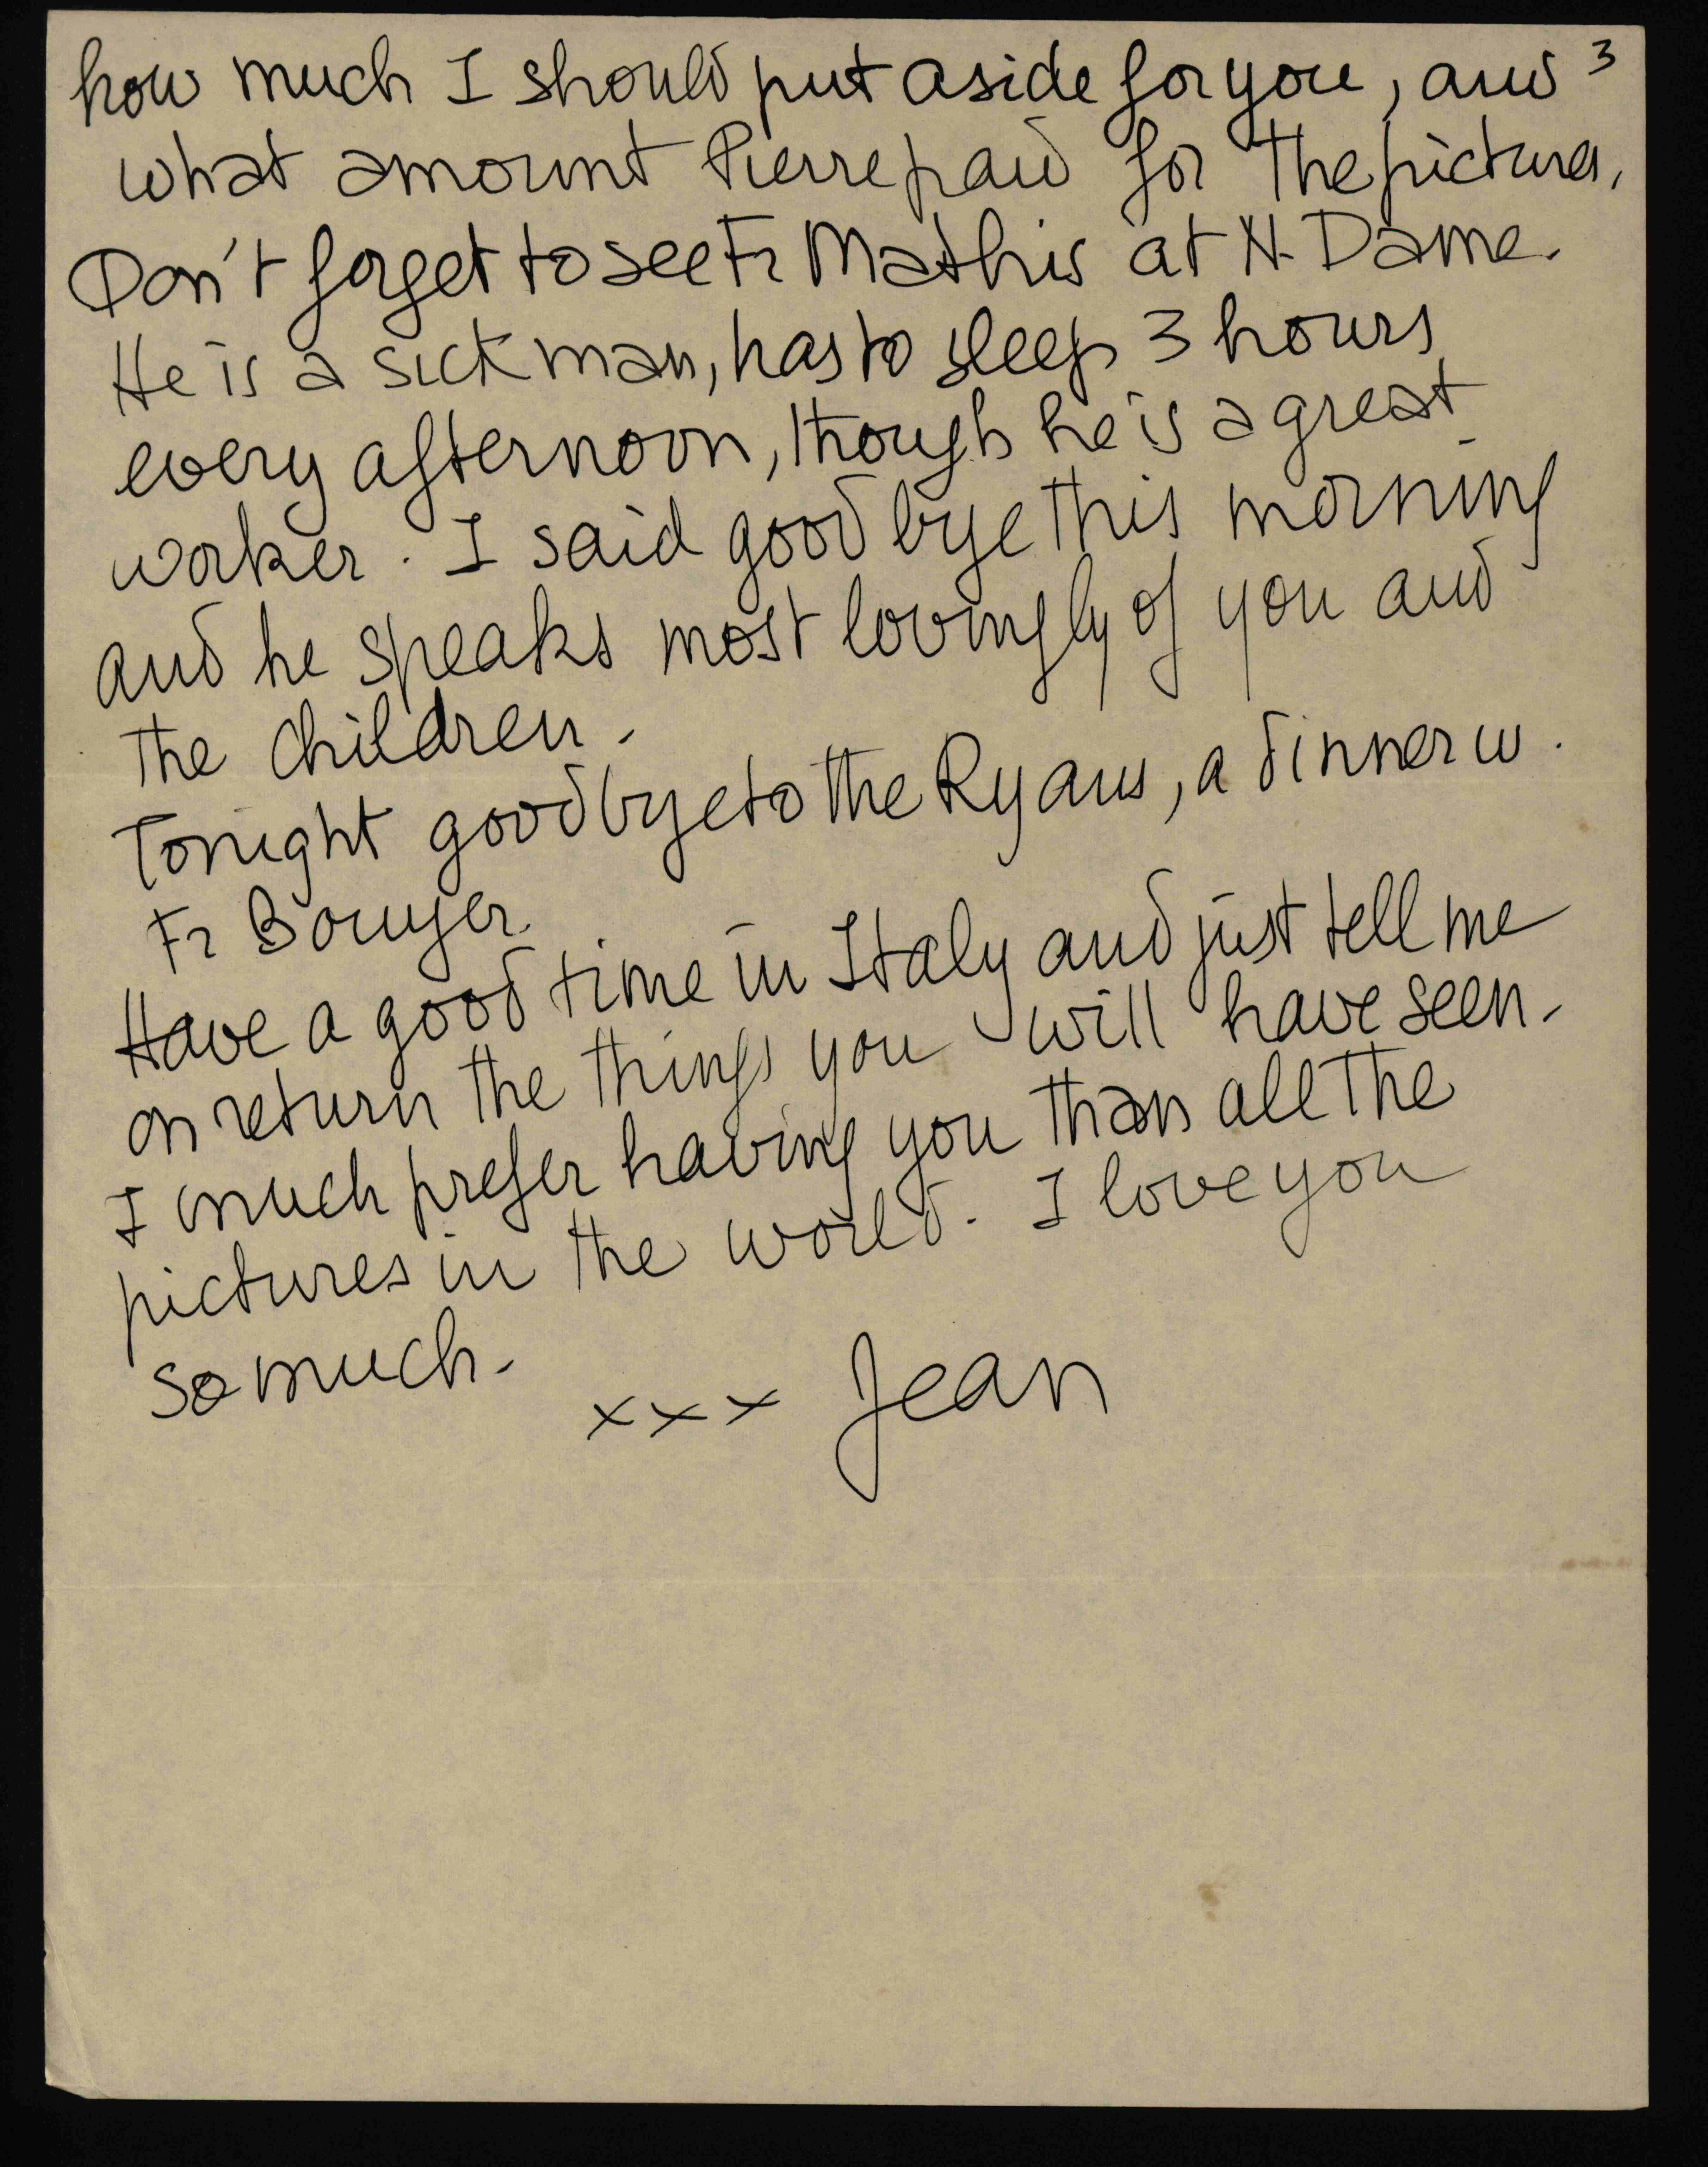 how much I should put aside for you, and 3
what amount Pierre paid for the pictures.
Don't forget to see Fr Mathis at N. Dame.
He is a sick man, has to sleep 3 hours
every afternoon, though he is a great
worker. I said good bye this morning
and he speaks most lovingly of you and
the children.
Tonight good bye to the Ryans, a dinner w.
Fr Bouyer.
Have a good time in Italy and just tell me
on return the things you will have seen.
I much prefer having you than all the
pictures in the world. I love you
so much.
xxx Jean